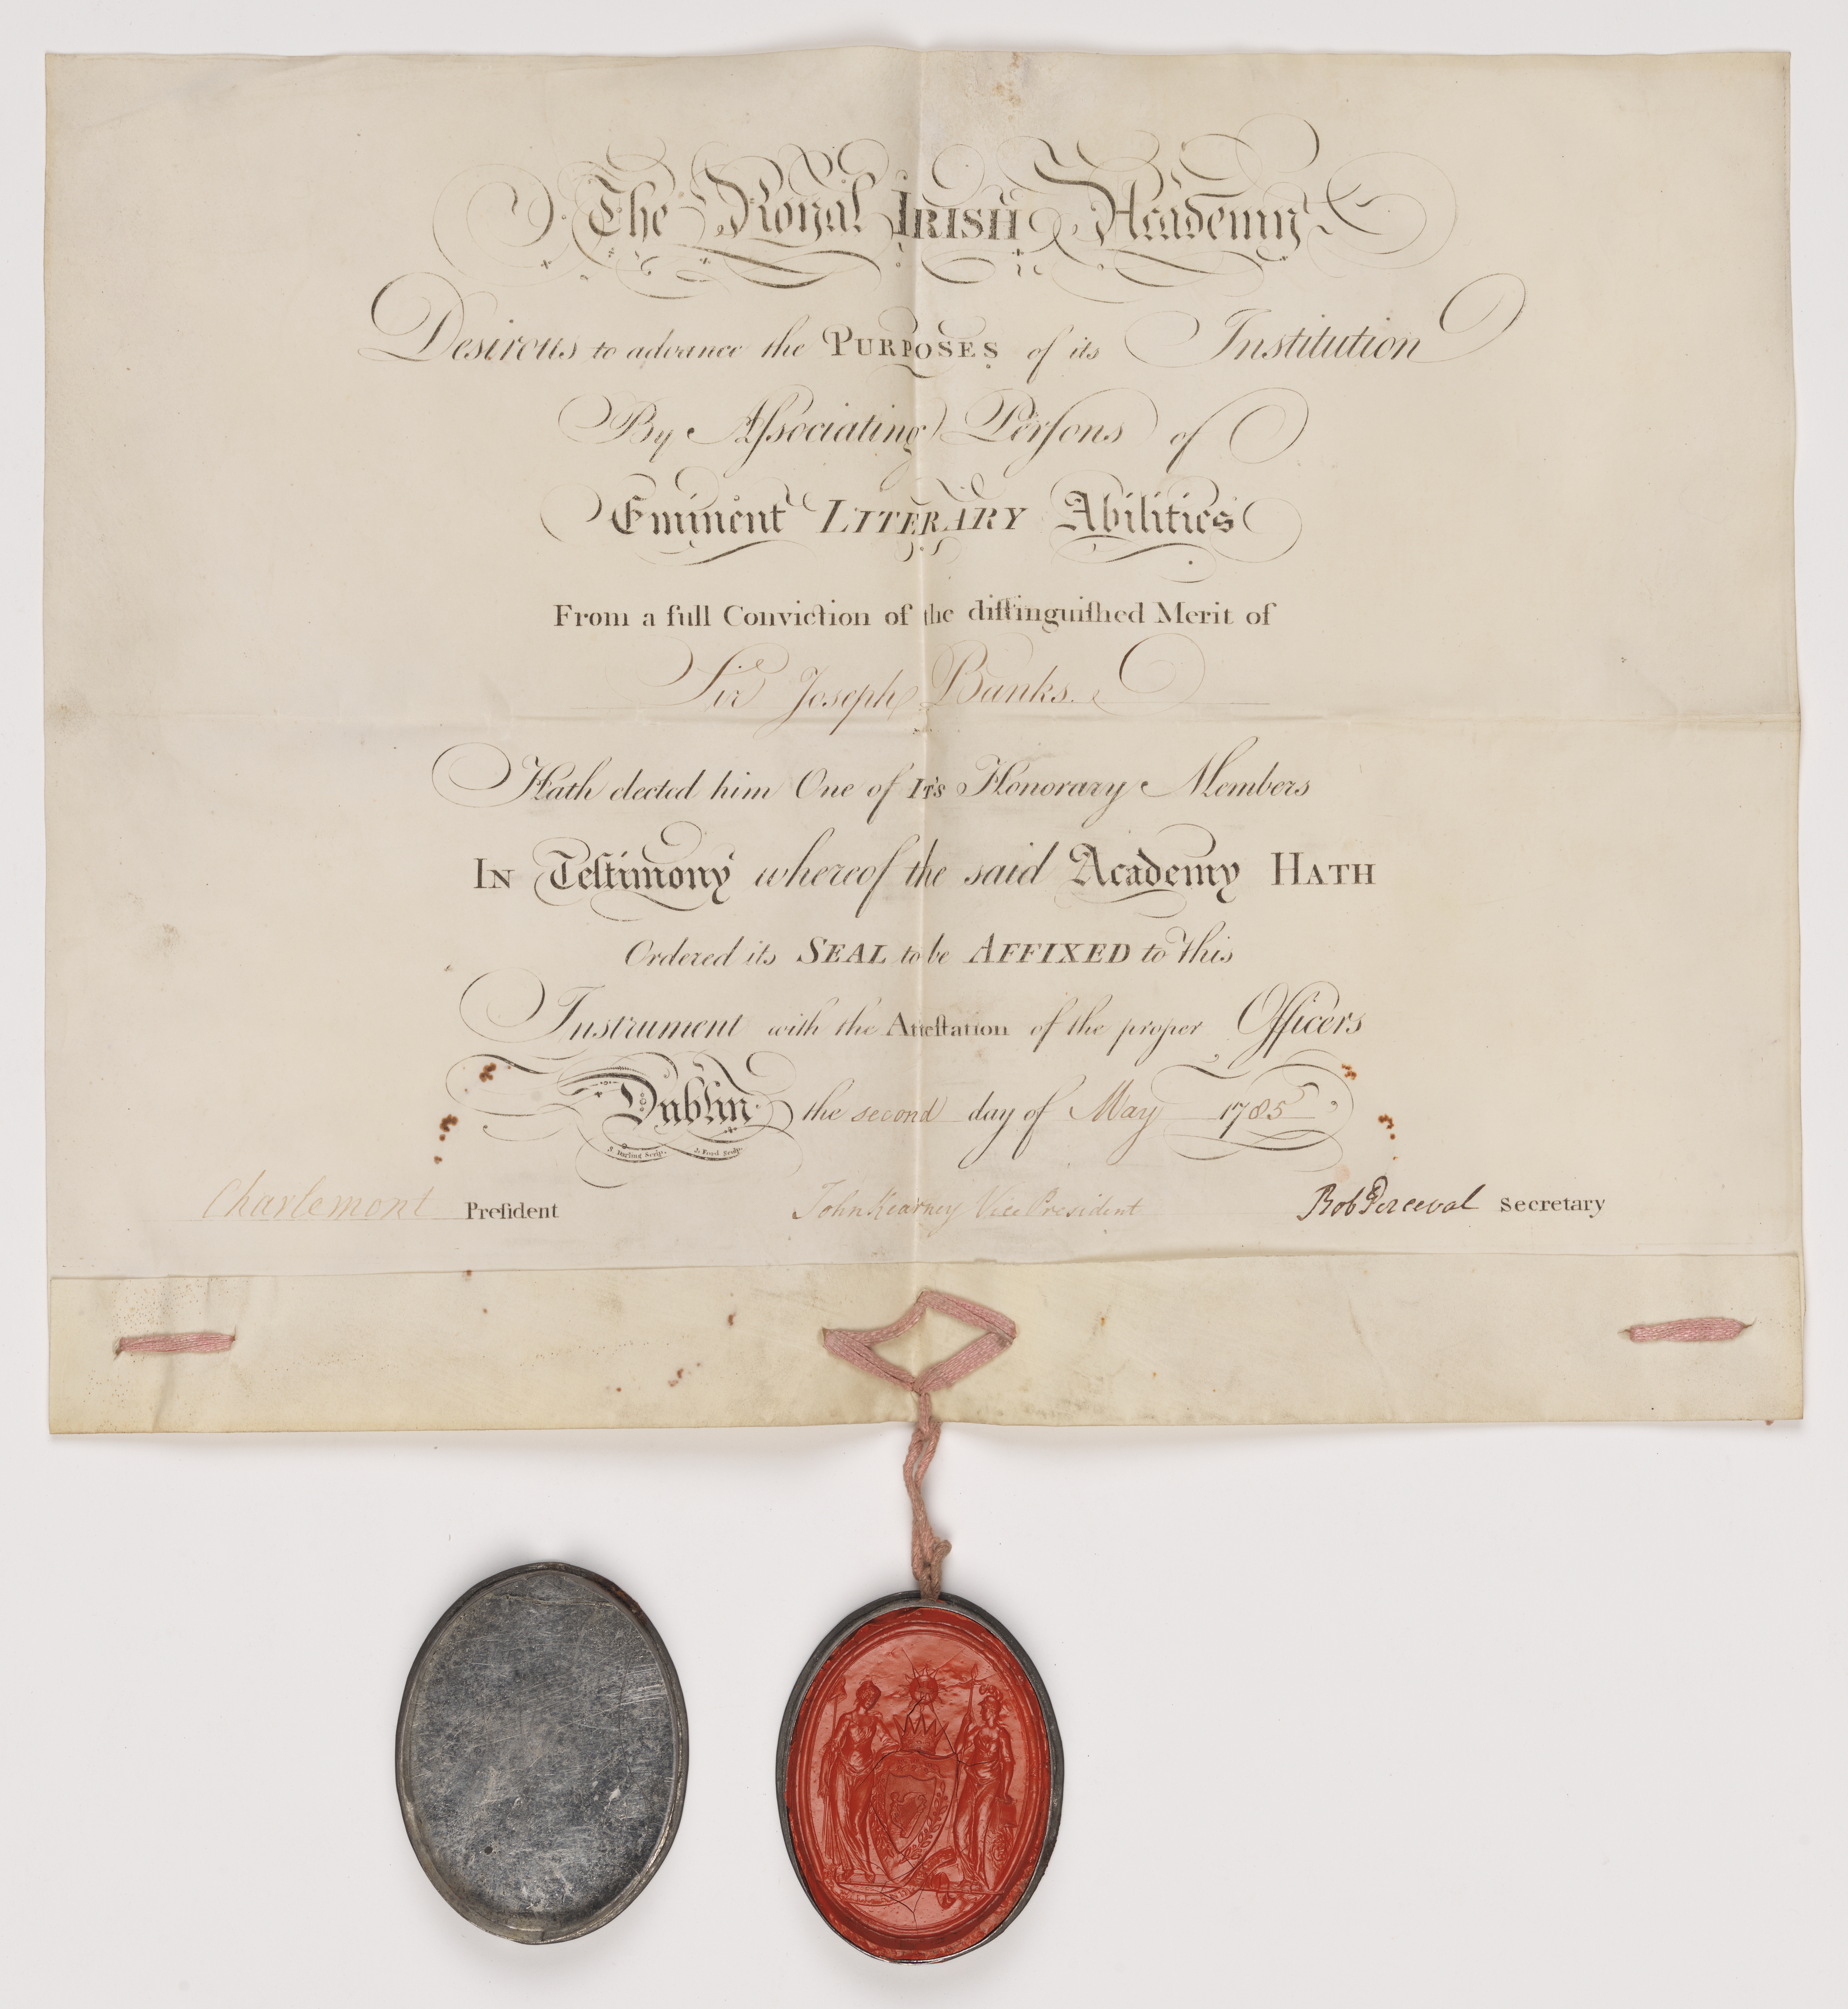 The Royal IRISH Academy
Desirous to advance the PURPOSES of its Institution
By Aſsociating Perſons of
Eminent LITERARY Abilities
From a full Conviction of the diſtinguiſhed Merit of
Sir Joseph Banks.
Hath elected him One of IT's Honorary Members
IN Teſtimony whereof the said Academy HATH
Ordered its SEAL to be AFFIXED to this
Instrument with the Atteſtation of the proper Officers
Dublin the second day of May 1785
S. Darling Scrip. J. Ford Sculp.
Charlemont Preſident John Kearney Vice President Rob Perceval Secretary